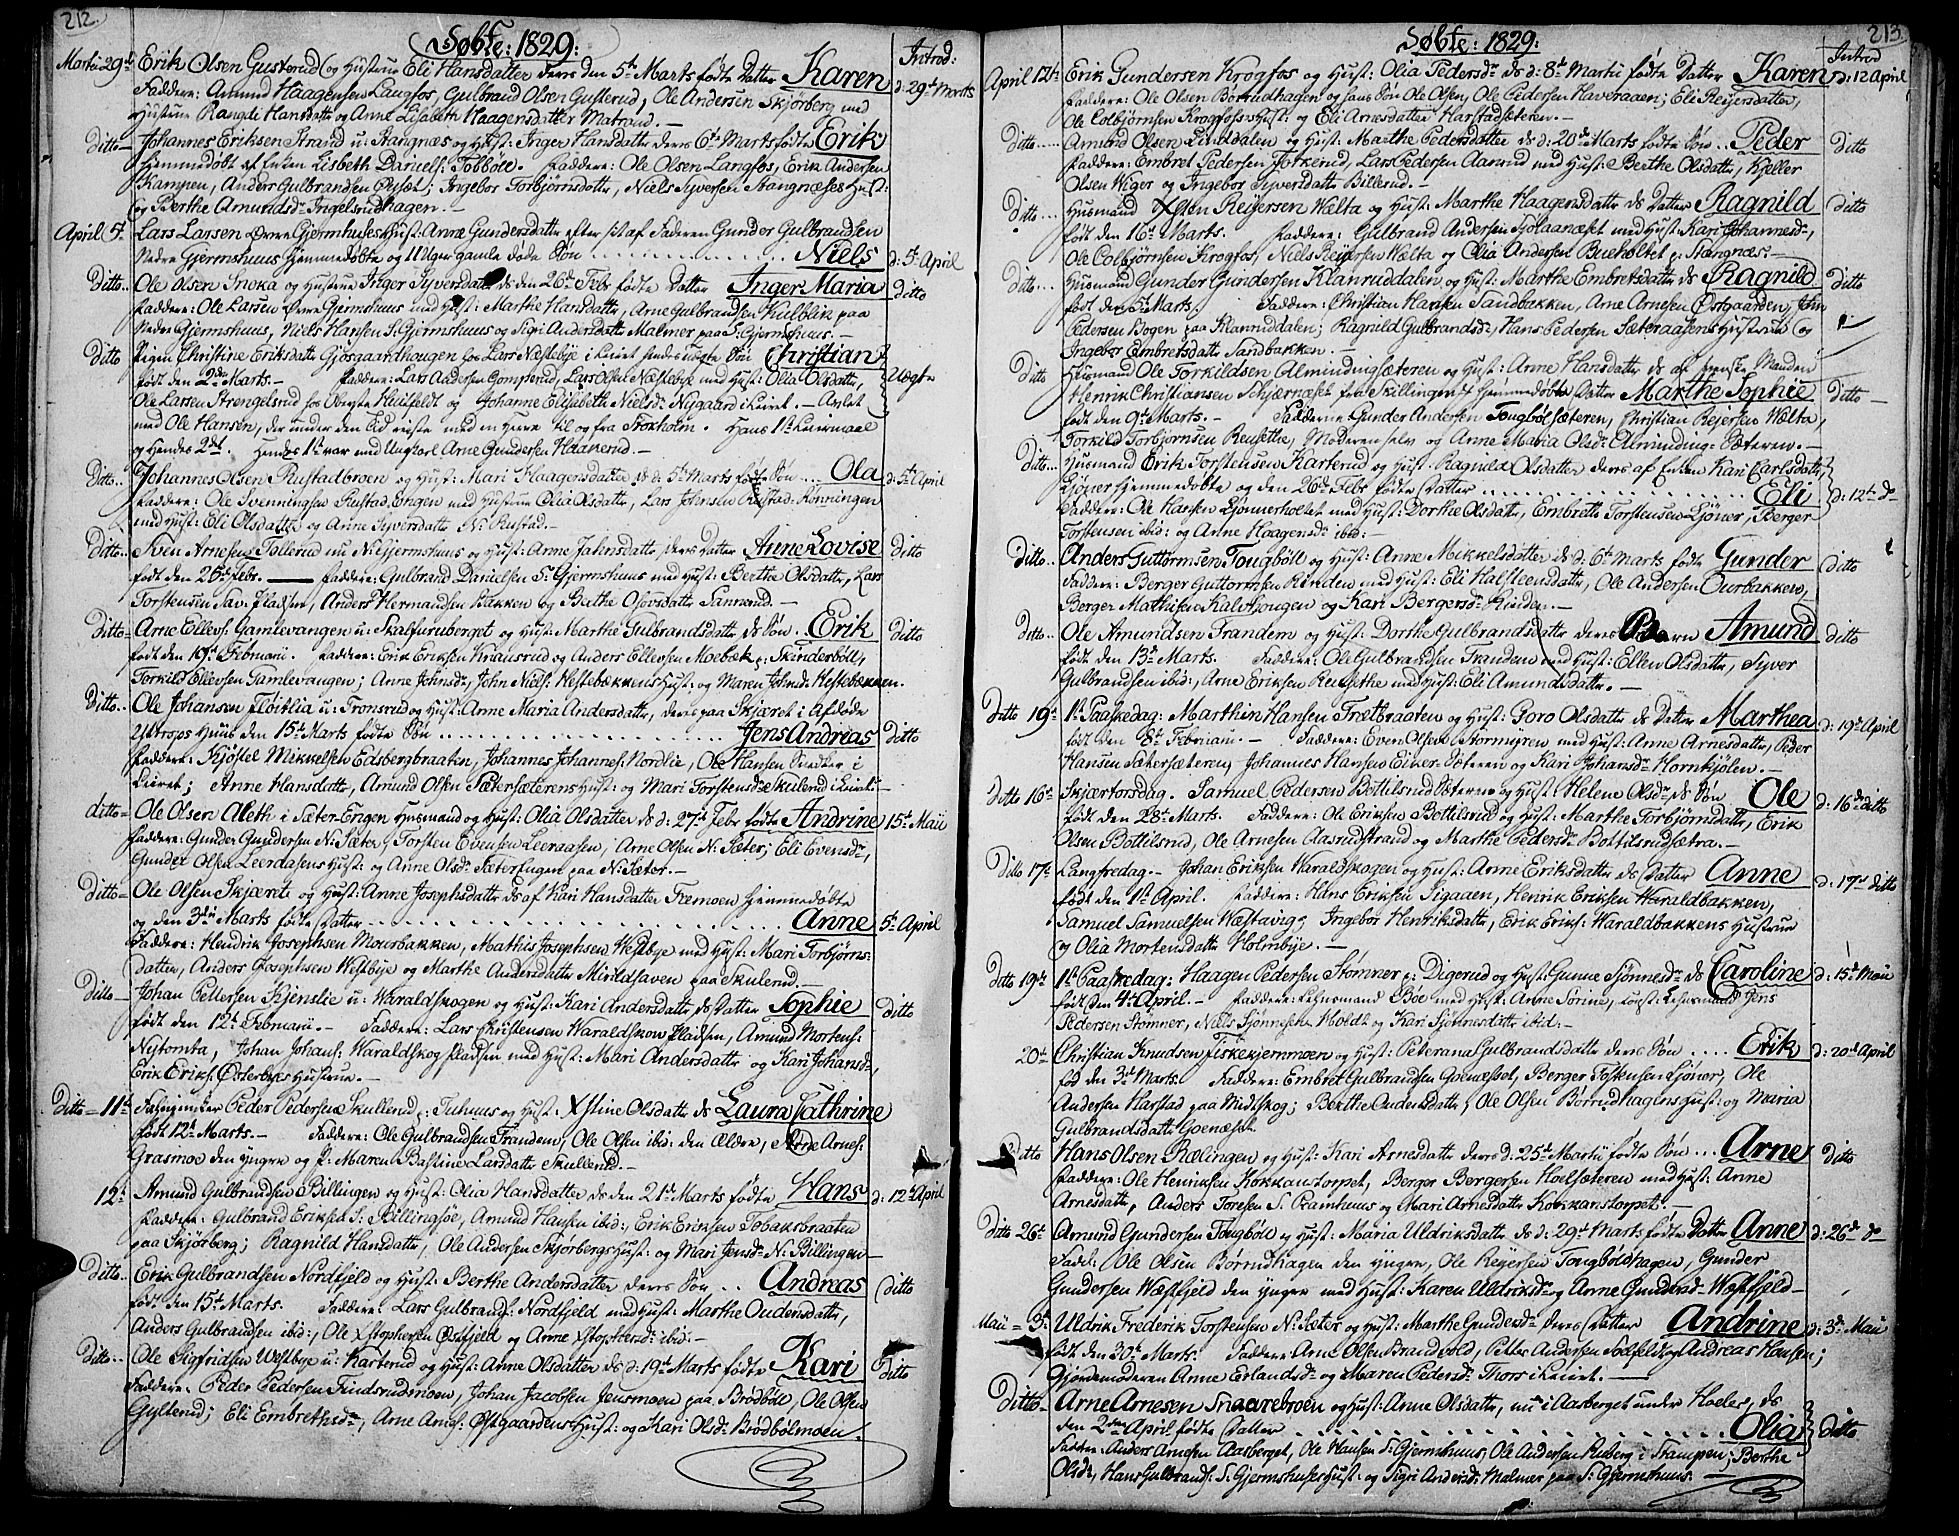 212
Døbte: 1829:
Introd:
Martii 29de Erik Olsen Gusterud og Hustrue Eli Hansdatter deres den 5te Marts fødte Datter Karen d: 29de Marts
Faddere: Amund Haagensen Langfos, Gulbrand Olsen Gusterud, Ole Andersen Skjørberg med
Hustrue Rangdi Hansdatter og Anne Lisabeth Haagensdatter Matrand. —
Ditto — Johannes Eriksen Strand u: Stangnæs og Hust: Inger Hansdatter deres 6te Marts fødte Erik
hjemmedøbt af Enken Lisbeth Daniels: Tobböle. Faddere: Ole Olsen Langfos, Erik Andersen
Kampen, Anders Gulbrandsen; Ingebor Torbjørnsdatter, Niels Syversen Stangnæses Hust:
og Berthe Amundsdr Ingelsrudhagen. —
April 5te Lars Larsen Øvre Gjermshuus Hust: Anne Gundersdatter efter sit af Faderen Gunder Gulbrandsen
Nedre Gjermshuus hjemmedøbte og 11 Uger gamle døde Søn Niels d: 5te April
Ditto Ole Olsen Snoka og Hustrue Inger Syversdatter den 26de Febr fødte Datter Inger Maria ditto
Faddere: Ole Larsen Øvre Gjermshuus med Hust: Marthe Hansdatter, Arne Gulbrandsen Kulblik paa
Nedre Gjermshuus, Niels Hansen S. Gjermshuus og Sigri Andersdatter Malmer paa S: Gjermshuus. —
Ditto Pigen Christine Eriksdatter Gjøsgaardhougen hos Lars Næstebye i Leiret hendes uægte Søn Christian
født den 2den Marts. — Faddere: Lars Andersen Gompterud, Lars Olsen Næstebye med Hust: Olia Olsdatter, Uægte
Ole Larsen Strengelsrud hos Oberste Huitfeldt og Johanne Elisabeth Nielsdr Nygaard i Leiret. — Avlet
med Ole Hansen, der under den Tid reiste med en Herre til og fra Stokholm. Hans 1te Leiermaal
og hendes 2det. hendes 1te var med Ungkarl Arne Gundersen Haakerud. —
Ditto.. Johannes Olsen Rustadbroen og Hust: Mari Haagensdatter ds d: 5te Marts fødte Søn .... Ola d: 5te April
Faddere: Ole Svenningsen Rustad-Engen med Hustrue Olia Olsdatter, Lars Johnsen Rustad-Rönningen
med Hust: Eli Olsdatter og Anne Syversdatter N: Rustad. —
Ditto.. Sven Arnesen Tollerud nu N: Gjermshuus og Hust: Anne Jahnsdatter, deres Datter Anne Lovise ditto
født den 26de Febr. — Faddere: Gulbrand Danielsen S: Gjermshuus med Hust: Berthe Olsdatter, Lars
Torstensen Sav: Pladsen, Anders Hermandsen Bakken og Berthe Olovsdatter Sannerud. —
Ditto = Arne Ellevs: Gamlevangen u: Skalfuruberget og Hust: Marthe Gulbrandsdatter ds Søn. Erik ditto
født den 19de Februarii. Faddere: Erik Eriksen Knausrud og Anders Ellevsen Moebæk p: Skinderböll,
Torkild Ellevsen Gamlevangen; Anne Johnsdr, John Niels: Hestebækkens Hust: og Maren Johnsd: Hestebækken.
Ditto.. Ole Johansen Flöitlia u: Tronsrud og Hust: Anne Maria Andersdatter, deres paa Skjæret i Afdøde
Utrops Huus den 15de Marts fødte Søn Jens Andreas ditto
Faddere: Kjöstel Mikkelsen Edsbergbraaten, Johannes Johannes: Nordlie, Ole Hansen Snedker i
Leiret; Anne Hansdatter, Amund Olsen Sætersæterens Hust: og Mari Torstensdr Skulerud i Leiret. —
ditto = Ole Olsen Aleth i Sæter-Engen Husmand og Hust: Olia Olsdatter ds d: 27de Febr fødte Andrine 15de Maii
Faddere: Gunder Gundersen N: Sæter, Torsten Evensen Leeraasen, Arne Olsen N: Sæter; Eli Evensdr,
Gunder Olsen Leerdasens Hust: og Anne Olsdr Sæterfugen paa N: Sæter. —
Ditto = Ole Olsen Skjærete og Hust: Anne Josephsdatter ds af Kari Hansdatter Tremoen hjemmedøbte
og den 3die Marts fødte Datter Anne 5te April
Faddere: Hendrik Josephsen Moursbakken, Mathis Josephsen Westbye med Hust: Mari Torbjørns-
datter, Anders Josephsen Westbye og Marthe Andersdatter Mirildshaven paa Skulerud. —
Ditto — Johan Pettersen Kjenslie u: Waraldskogen og Hust: Kari Andersdatter ds Datter Sophie ditto
født den 12te Februarii. — Faddere: Lars Christensen Waraldskow Pladsen, Amund Mortens:
Nystomta, Johan Johans: Waraldskog Pladsen med Hust: Mari Andersdatter og Kari Johansdr,
Erik Eriks: Østerbyes Hustrue. —
Ditto = 11te Peder Pedersen Skullerud p: Tuhuus og Hust: Xstine Olsdatter ds Laura Cathrine
født 12te Marts. — Faddere: Ole Gulbrandsen Frandem, Ole Olsen ibid: den Ældre, Arne Arnes:
Grasmoe den yngre og P: Maren Bastine Larsdatter Skullerud. —
12te Amund Gulbrandsen Billingen og Hust: Olia Hansdatter ds den 21de Marts fødte Hans d: 12te April
Faddere: Gulbrand Eriksen S: Billingsöe, Amund Hansen ibid:, Erik Eriksen Tobaksbraaten
paa Skjørberg; Ragnild Hansdatter, Ole Andersen Skjørbergs Hust: og Mari Jensdr N: Billingen —
Ditto.. Erik Gulbrandsen Nordfjeld og Hust: Berthe Andersdatter deres Søn .. Andreas ditto
født den 15de Marts. Faddere: Lars Gulbrands: Nordfjeld med Hust: Marthe Oudensdatter,
Anders Gulbrandsen ibid:, Ole Xstophersen Østfjeld og Anne Xstophersdr ibid: —
Ditto.. Ole Sigfridsen Westbye u: Karterud og Hust: Anne Olsdatter ds d: 19de Marts fødte Kari ditto
Faddere: Peder Pedersen Findsrudmoen, Johan Jacobsen Jensmoen paa Brödböl, Ole Olsen
Gylterud; Eli Embrethsdr, Arne Arnes: Østgaardens Hust: og Kari Olsdr Brödbölmoen.
213
Døbte: 1829:
Introd
April 12te Erik Gundersen Krogfos og Hust: Olia Pedersdr ds d: 8de Martii fødte Datter Karen d: 12 April
Faddere: Ole Olsen Børrudhagen og hans Søn Ole Olsen, Ole Pedersen Haveraaen; Eli Reiersdatter,
Ole Colbjørnsen Krogfoss Hust: og Eli Arnesdatter Harstadsæteren. —
Ditto..... Amund Olsen Linddalen og Hust: Marthe Pedersdatter ds d: 20de Marts fødte Søn .. Peder ditto
Faddere: Embret Pedersen Torkerud, Lars Pedersen Aamud med Hust: Berthe Olsdatter, Kjeller
Olsen Wiger og Ingebor Syversdatter Billerud. —
Ditto... Husmand Xsten Reiersen Wælta og Hust: Marthe Haagensdatter ds Datter Ragnild ditto
født den 16de Marts. Faddere: Gulbrand Andersen Tjolaanæset med Hust: Kari Johannesdr,
Ole Colbjørnsen Krogfos, Niels Reiersen Wælta og Olia Andersen Bueholtet p: Stangnæs. —
Ditto... Husmand Gunder Gundersen Klanruddalen og Hust: Marthe Embretsdatter ds Ragnild ditto
født den 5te Marts. Faddere: Christian Hansen Sandbakken, Arne Arnesen Østgaarden, John
Pedersen Bogen paa Klanruddalen; Ragnild Gulbrandsdr, Hans Pedersen Sæteraasens Hustrue og
Ingebor Embretsdatter Sandbakken. —
Ditto Husmand Ole Torkildsen Almindingsæteren og Hust: Anne Hansdatter ds af svenske Manden
Henrik Christiansen Skjernæset fra Skillingmark hjemmedøbte Datter Marthe Sophie ditto —
født den 9de Marts. — Fadderne: Gunder Andersen Tougböl sæteren, Christian Reiersen Wælta,
Torkild Torbjørnsen Reusethe, Moderen selv og Anne Maria Olsdr Almindings-Sæteren. —
Ditto... Husmand Erik Torstensen Karterud og Hust: Ragnild Olsdatter deres af Enken Kari Carlsdatter
Ljöner hjemmedøbte og den 26de Febr fødte Datter Eli d: 12te do
Faddere: Ole Hansen Ljönnerholtet med Hust: Dorthe Olsdatter, Embrett Torstensen Ljöner, Berger
Torstensen ibid: og Anne Haagensdr ibid: —
Ditto.. Anders Guttormsen Tougböll og Hust: Anne Mikkelsdatter ds d: 6te Marts fødte Gunder ditto
Faddere: Berger Guttormsen Rinden med Hust: Eli Halsteensdatter, Ole Andersen Ourbakken,
Berger Mathisen Kalvhougen og Kari Bergersdr Rinden. —
Ditto.. Ole Amundsen Frandem og Hust: Dorthe Gulbrandsdatter deres Barn Amund ditto
født den 13de Marts. Faddere: Ole Gulbrandsen Frandem med Hust: Ellen Olsdatter, Syver
Gulbrandsen ibid:, Arne Eriksen Reusethe med Hust: Eli Amundsdatter. —
Ditto 19de 1te Paaskedag: Marthin Hansen Trætbraaten og Hust: Goro Olsdatter ds Datter Marthea d: 19de April
født den 8de Februarii. — Faddere: Even Olsen Stormyren med Hust: Anne Arnesdatter, Peder
Hansen Sætersæteren, Johannes Hansen Eiker-Sæteren og Kari Johansdr Hornkjölen. —
Ditto 16de Skjærtorsdag. Samuel Pedersen Bottilsrud Sæteren og Hust: Helene Olsdr ds Søn Ole d: 16de ditto
født den 28de Marts. Faddere: Ole Eriksen Bottilsrud og Hust: Marthe Torbjørnsdatter, Erik
Olsen Bottilsrud, Ole Arnesen Aasrudstrand og Marthe Pedersdr Bottilsrudsætra. —
Ditto 17de Langfredag. — Johan Eriksen Waraldskogen og Hust: Anne Eriksdatter ds Datter Anne d: 17de ditto
født den 1te April. Faddere: Hans Eriksen Sigaaen, Henrik Eriksen Waraldbakken,
Samuel Samuelsen Wæltavig; Ingebor Henriksdatter, Erik Eriks: Waraldbakkens Hustrue
og Olia Mortensdatter Holmbye. —
Ditto 19de 1te Paaskedag: Haagen Pedersen Stømner p: Digerud og Hust: Gunne Sjönnesdr ds Caroline d: 15de Maii
født den 4de April. — Faddere: Lehnsmand Böe med Hust: Anne Sørine, forst: Lehnsmand Jens
Pedersen Stømner, Niels Sjönnesen Moldt og Kari Sjönnesdatter ibid: —
20de Christian Knudsen Fiskekjernmoen og Hust: Peterana Gulbrandsdatter deres Søn .... Erik d: 20de April
fød den 3de Marts. Faddere: Embret Gulbrandsen Goenæsset, Berger Torstensen Ljöner, Ole
Andersen Harstad paa Midtskog; Berthe Andersdatter, Ole Olsen Börrudhagens Hust: og Maria
Gulbrandsdatter Goenæset.
ditto Hans Olsen Rælingen og Hust: Kari Arnesdatter deres d: 25de Martii fødte Søn ... Arne ditto
Faddere: Ole Henriksen Kokkanstorpet, Berger Bergersen Hoelsæteren med Hust: Anne
Arnesdatter, Anders Toresen S: Pramhuus og Mari Arnesdatter Kokkanstorpet. —
Ditto 26de Amund Gundersen Tougböle og Hust: Maria Uldriksdatter ds d: 29de Marts fødte Datter Anne d: 26de do
Fadd: Ole Olsen Børrudhagen den yngre, Ole Reiersen Tougbölshagen, Gunder
Gundersen Wæstfjeld den yngre med Hust: Karen Uldriksdr og Anne Gundersdr Wæstfjeld —
Maii = 3de Uldrik Frederik Torstensen N: Sæter og Hust: Marthe Gundersdr deres Datter Andrine d: 3de Maii
født den 30te Marts. Faddere: Arne Olsen Brandvold, Petter Andersen og Andreas Hansen;
Gjordemoderen Anne Erlandsdr og Maren Pedersdr Thors i Leiret. —
Ditto — Arne Arnesen Snaarebroen og Hust: Anne Olsdatter, nu i Aasberget under Hoeler, ds
den 2den April fødte Datter Olia ditto
Fadder: Anders Arnesen Aasberget, Ole Hansen S: Gjermshuus, Ole Andersen Ruberg i Stampen; Berthe
Olsdr, Hans Gulbrands: S: Gjermshuses Hust: og Sigri Andersdr Malmer paa S: Gjermshuus. —